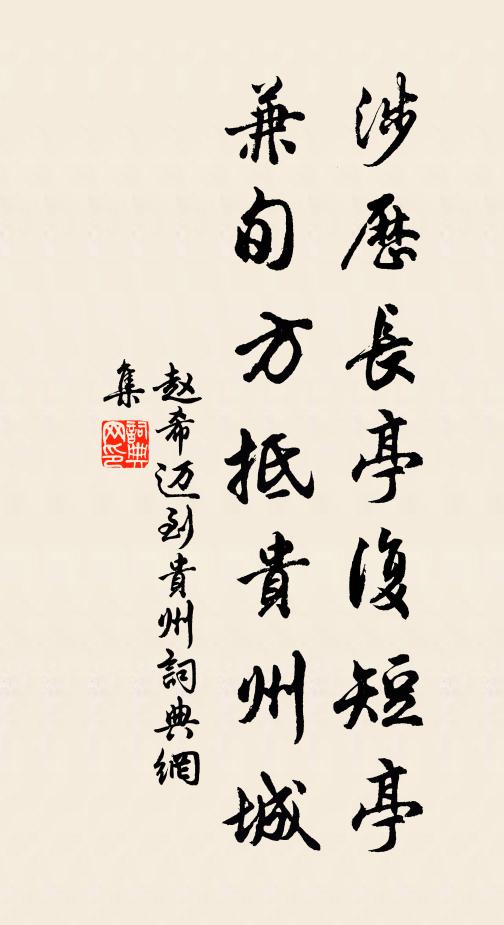 涉歷長亭復短亭
兼旬方抵貴州城
赵希迈到貴州詞典網
集
詞典
网印